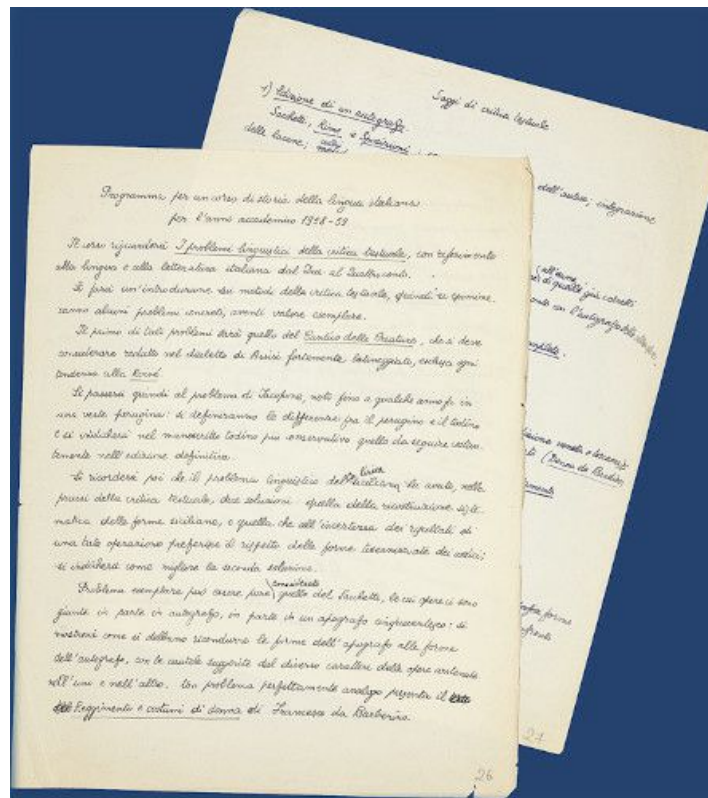 Saggi di critica testuale
1) Edizione di un autografo.
Sacchetti, Rime e Sposizioni:
delle lacune; dell'autore; integrazione
di quelle già corrotti
con l'autografo
complete.
(Dicesa da Barberino
forme
Programma per un corso di storia della lingua italiana
per l'anno accademico 1958-59
Il corso riguarderà I problemi linguistici della critica testuale, con riferimento
alla lingua e alla letteratura italiana dal Due al Quattrocento.
Si farà un'introduzione sui metodi della critica testuale, quindi si esamine-
ranno alcuni problemi concreti, aventi valore esemplare.
Il primo di tali problemi sarà quello del Cantico delle Creature, che si deve
considerare redatto nel dialetto di Assisi fortemente latineggiante, esclusa ogni
tendenza alla
Si passerà quindi al problema di Jacopone, noto fino a qualche anno fa in
una veste perugina: si definiranno le differenze fra il perugino e il todino
e si indicherà nel manoscritto todino più conservativo quello da seguire costan-
temente nell'edizione definitiva.
Si ricorderà poi che il problema linguistico della lirica siciliana ha avuto, nella
prassi della critica testuale, due soluzioni: quella della ricostruzione siste-
matica delle forme siciliane, e quella che all'incertezza dei risultati di
una tale operazione preferisce il rispetto delle forme toscaneggiate dei codici;
si indicherà come migliore la seconda soluzione.
Problema esemplare può essere pure considerato quello del Sacchetti, le cui opere ci sono
giunte in parte in autografo, in parte in un apografo cinquecentesco: si
mostrerà come si debbano ricondurre le forme dell'apografo alle forme
dell'autografo, con le cautele suggerite dal diverso carattere delle opere contenute
nell'uno e nell'altro. Un problema perfettamente analogo presenta il
Reggimento e costumi di donna di Francesco da Barberino.
26
27